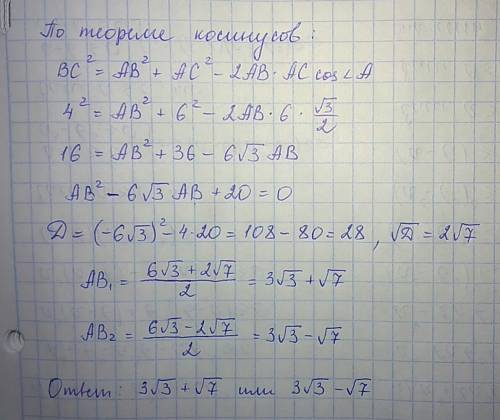 По теореме косинусов:
BC² = AB² + AC² - 2AB · AC cos∠A
4² = AB² + 6² - 2AB · 6 · √3/2
16 = AB² + 36 - 6√3 AB
AB² - 6√3 AB + 20 = 0
D = (-6√3)² - 4·20 = 108 - 80 = 28, √D = 2√7
AB₁ = (6√3 + 2√7)/2 = 3√3 + √7
AB₂ = (6√3 - 2√7)/2 = 3√3 - √7
Ответ: 3√3 + √7 или 3√3 - √7